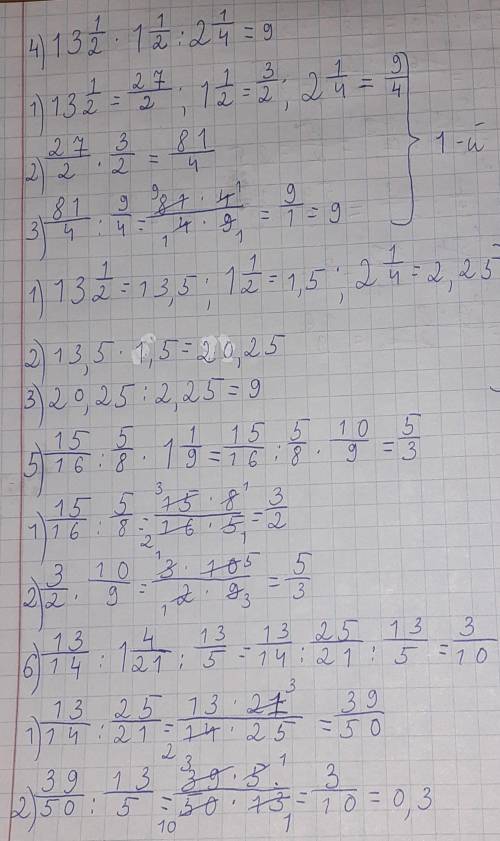 4) 13 1/2 · 1 1/2 : 2 1/4 = 9
1) 13 1/2 = 27/2 ; 1 1/2 = 3/2 ; 2 1/4 = 9/4
2) 27/2 · 3/2 = 81/4 } 1-й
3) 81/4 : 9/4 = 9 81 · 4 1 / 1 4 · 9 1 = 9/1 = 9
1) 13 1/2 = 13,5 ; 1 1/2 = 1,5 ; 2 1/4 = 2,25
2) 13,5 · 1,5 = 20,25
3) 20,25 : 2,25 = 9
5) 15/16 : 5/8 · 1 1/9 = 15/16 : 5/8 · 10/9 = 5/3
1) 15/16 : 5/8 = 3 15 · 8 1 / 2 16 · 5 1 = 3/2
2) 3/2 · 10/9 = 1 3 · 10 5 / 1 2 · 9 3 = 5/3
6) 13/14 : 1 4/21 : 13/5 = 13/14 : 25/21 : 13/5 = 3/10
1) 13/14 : 25/21 = 13 · 21 3 / 14 2 · 25 = 39/50
2) 39/50 : 13/5 = 3 39 · 5 1 / 10 50 · 13 1 = 3/10 = 0,3